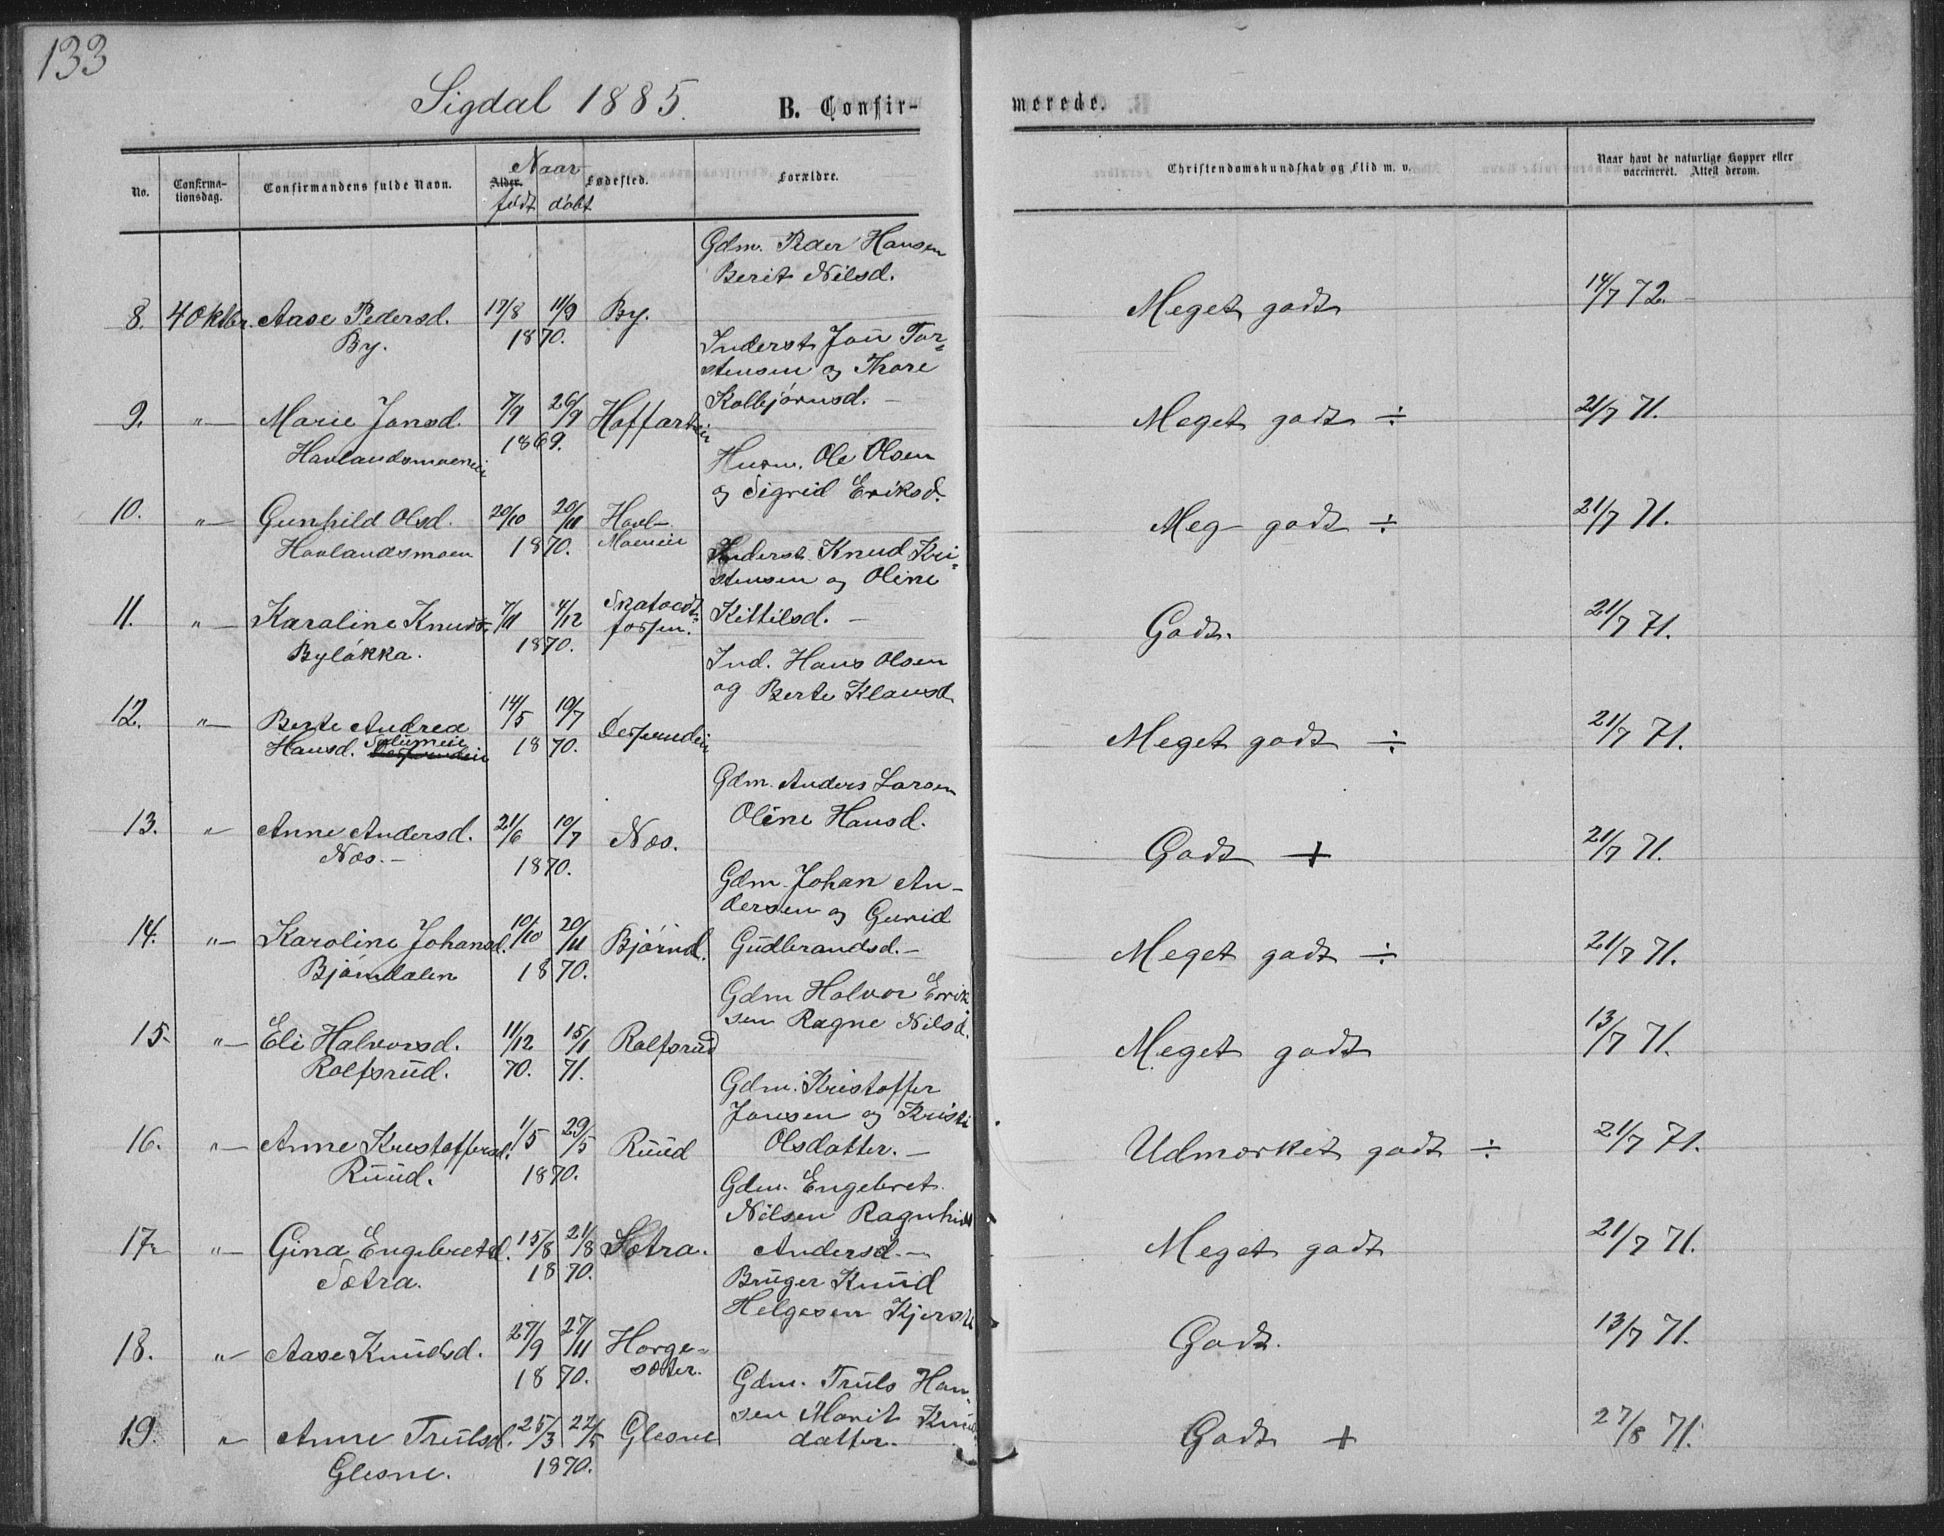 133
Sigdal 1885.
B. Confir-
merede.
No.
Confirma-
tionsdag.
Confirmandens fulde Navn.
Naar
Alder.
født døbt
Fødested.
Forældre.
Christendomskundskab og Flid m. v.
Naar havt de naturlige Kopper eller
vaccineret. Attest derom.
Gdm. Peder Hansen
Berit Nilsd.
8. 4 Oktbr. Aase Pedersd. 17/8 11/9 By. Meget godt 14/7 72.
By. 1870.
Inderst Jon Tor-
stensen og Thore
Kolbjørnsd. –
9. "— Marie Jonsd. 7/9 26/9 Hoffarteie Meget godt ÷ 21/7 71.
Havlandsmoeneie 1869.
Husm. Ole Olsen
og Sigrid Eriksd.
10. "— Gunhild Olsd. 20/10 20/11 Havl- Meg godt ÷ 21/7 71.
Havlandsmoen 1870. Moeneie
Inderst Knud Kri-
stensen og Oline
Kittilsd. –
11. "— Karoline Knudsd. 7/11 4/12 Godt. 21/7 71.
Byløkka. 1870.
Ind. Hans Olsen
og Berte Klausd.
12. "— Berte Andrea 14/5 10/7 Meget godt ÷ 21/7 71.
Hansd. 1870.
Gdm. Anders Larsen
Oline Hansd.
13. " Anne Andersd. 21/6 10/7 Næs. Godt + 21/7 71.
Næs. – 1870.
Gdm. Johan An-
dersen og Gurid
Gudbrandsd. –
14. "— Karoline Johansd. 10/10 20/11 Bjørnd. Meget godt ÷ 21/7 71.
Bjørndalen 1870.
Gdm Halvor Erik
sen Ragne Nilsd.
15. "— Eli Halvorsd. 11/12 15/1 Rolfsrud Meget godt 13/7 71.
Rolfsrud. 70. 71.
Gdm. Kristoffer
Jonsen og Kristi
Olsdatter. –
16. "— Anne Kristoffersd. 1/5 29/5 Ruud Udmærket godt ÷ 21/7 71.
Ruud. 1870.
Gdm. Engebret
Nilsen Ragnhild
Andersd. –
17. "— Gina Engebretsd. 15/8 21/8 Sætra. Meget godt 21/7 71.
Sætra. 1870.
Bruger Knud
Helgesen Kjersti
18. " Aase Knudsd. 27/9 27/11 Horge- Godt. 13/7 71.
1870. sæter.
Gdm. Truls Han-
sen Marit Knuds
datter. –
19. " Anne Trulsd. 25/3 22/5 Glesne Godt + 27/8 71.
Glesne. 1870.